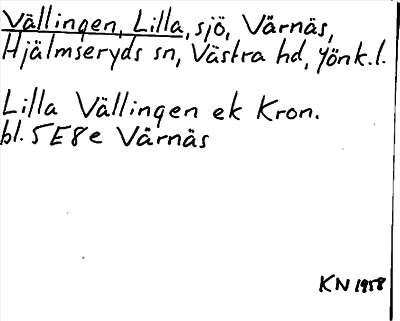 Vällingen, Lilla, sjö, Värnäs,
Hjälmseryds sn, Västra hd, Jönk.l.
Lilla Vällingen ek Kron.
bl. 5E8e Värnäs
KN 1958